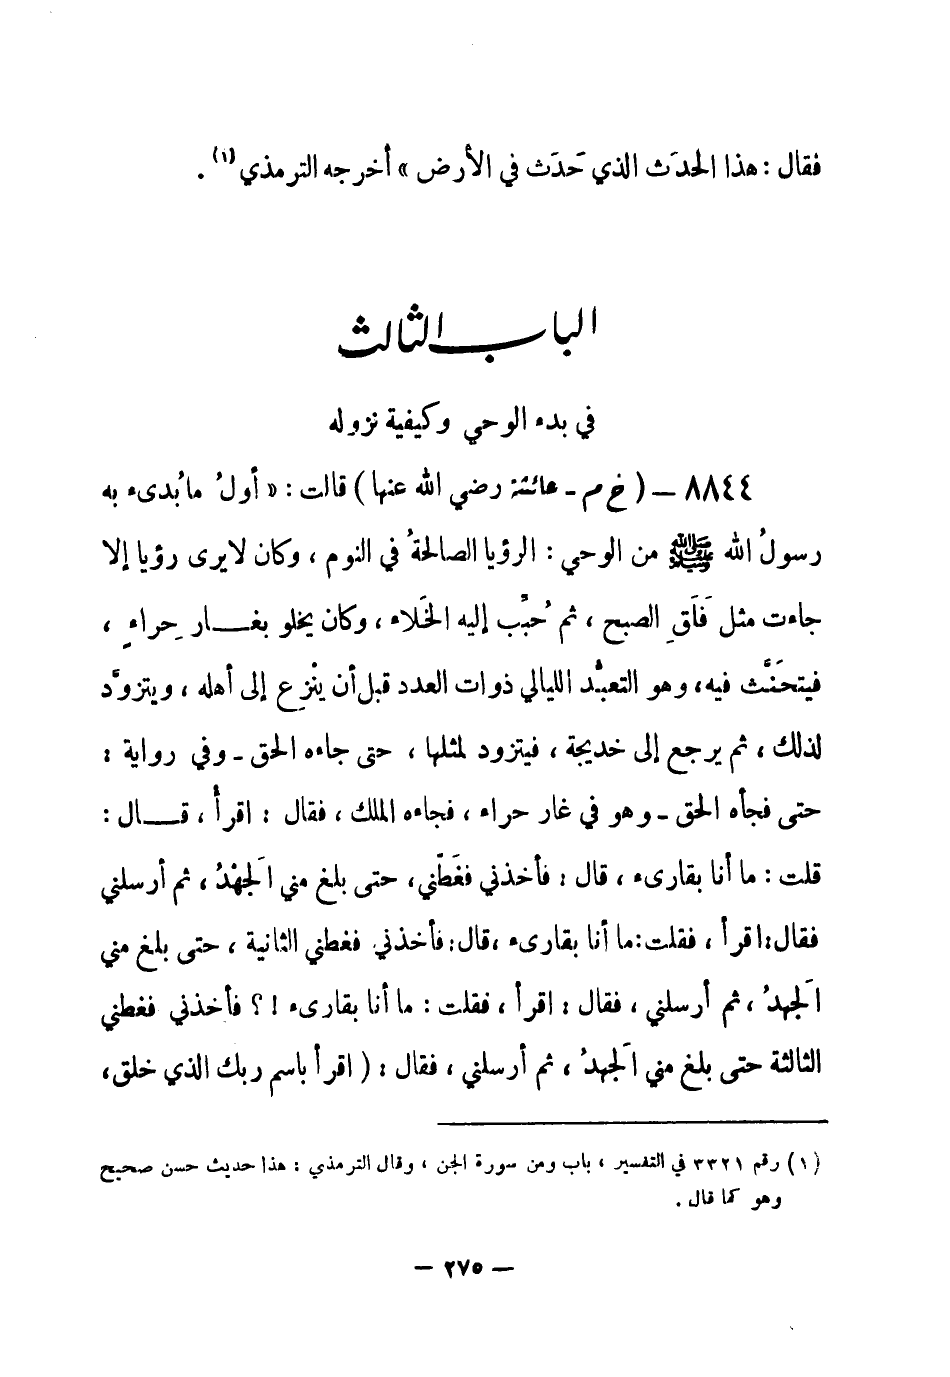 فقال : هذا الحدَث الذي حَدَث في الأرض » أخرجه الترمذي (١) .
الباب الثالث
في بدء الوحي وكيفية نزوله
٨٨٤٤ – ( خ م - عائشة رضي الله عنها ) قالت : « أولُ ما بُدىء به
رسولُ الله ﷺ من الوحي : الرؤيا الصالحةُ في النوم ، وكان لا يرى رؤيا إلا
جاءت مثل فَلَقِ الصبح ، ثم حُبِّب إليه الخَلاء ، وكان يخلو بغار حِراءٍ ،
فيتحَنَّث فيه، وهو التعبُّد الليالي ذوات العدد قبل أن يَنْزِع إلى أهله ، ويتزوَّد
لذلك ، ثم يرجع إلى خديجة ، فيتزود لمثلها ، حتى جاءه الحق - وفي رواية :
حتى فجأه الحق - وهو في غار حراء ، فجاءه الملك ، فقال : اقرأْ ، قال :
قلت : ما أنا بقارىء ، قال : فأخذني فغَطّني، حتى بلغ مني الَجهْدُ ، ثم أرسلني
فقال : اقرأ ، فقلت : ما أنا بقارىء ، قال : فأخذني فغطني الثانية ، حتى بلغ مني
الَجهدُ ، ثم أرسلني ، فقال : اقرأ ، فقلت : ما أنا بقارىء ! ؟ فأخذني فغطني
الثالثة حتى بلغ مني الَجهدُ ، ثم أرسلني ، فقال : ( اقرأ باسم ربك الذي خلق،
(١) رقم ٣٣٢١ في التفسير ، باب ومن سورة الجن ، وقال الترمذي : هذا حديث حسن صحيح
وهو كما قال .
– ٢٧٥ –